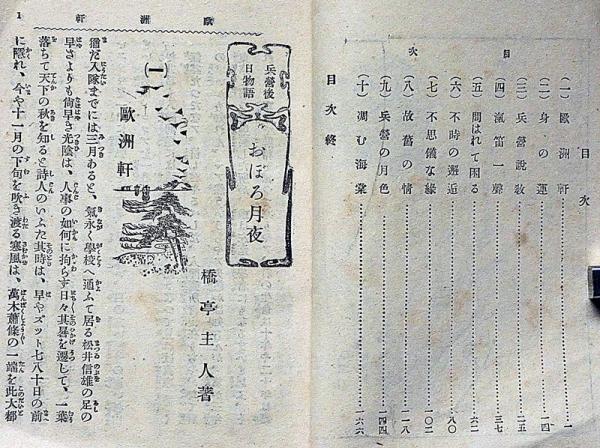 目次
目次
(一)歐洲軒……一
(二)身の運……一四
(三)兵營說敎……二五
(四)滊笛一聲……三七
(五)問はれて困る……六二
(六)不時の邂逅……八〇
(七)不思儀な緣……一〇二
(八)故舊の情……一二八
(九)兵營の月色……一四四
(十)凋む海棠……一六六
目次終
歐洲軒
1
兵營後日物語
おぼろ月夜
橋亭主人著
(一)歐洲軒
猶だ入隊までには三月あると、氣永く學校へ通ふて居る松井信雄の足の
早さよりも尙早き光陰は、人事の如何に拘らす日々其晷を遷して、一葉
落ちて天下の秋を知ると詩人のいふた其時は、早やズツト七八十日の前
に隱れ、今や十一月の下旬を吹き渡る寒風は、萬木蕭條の一端を此大都